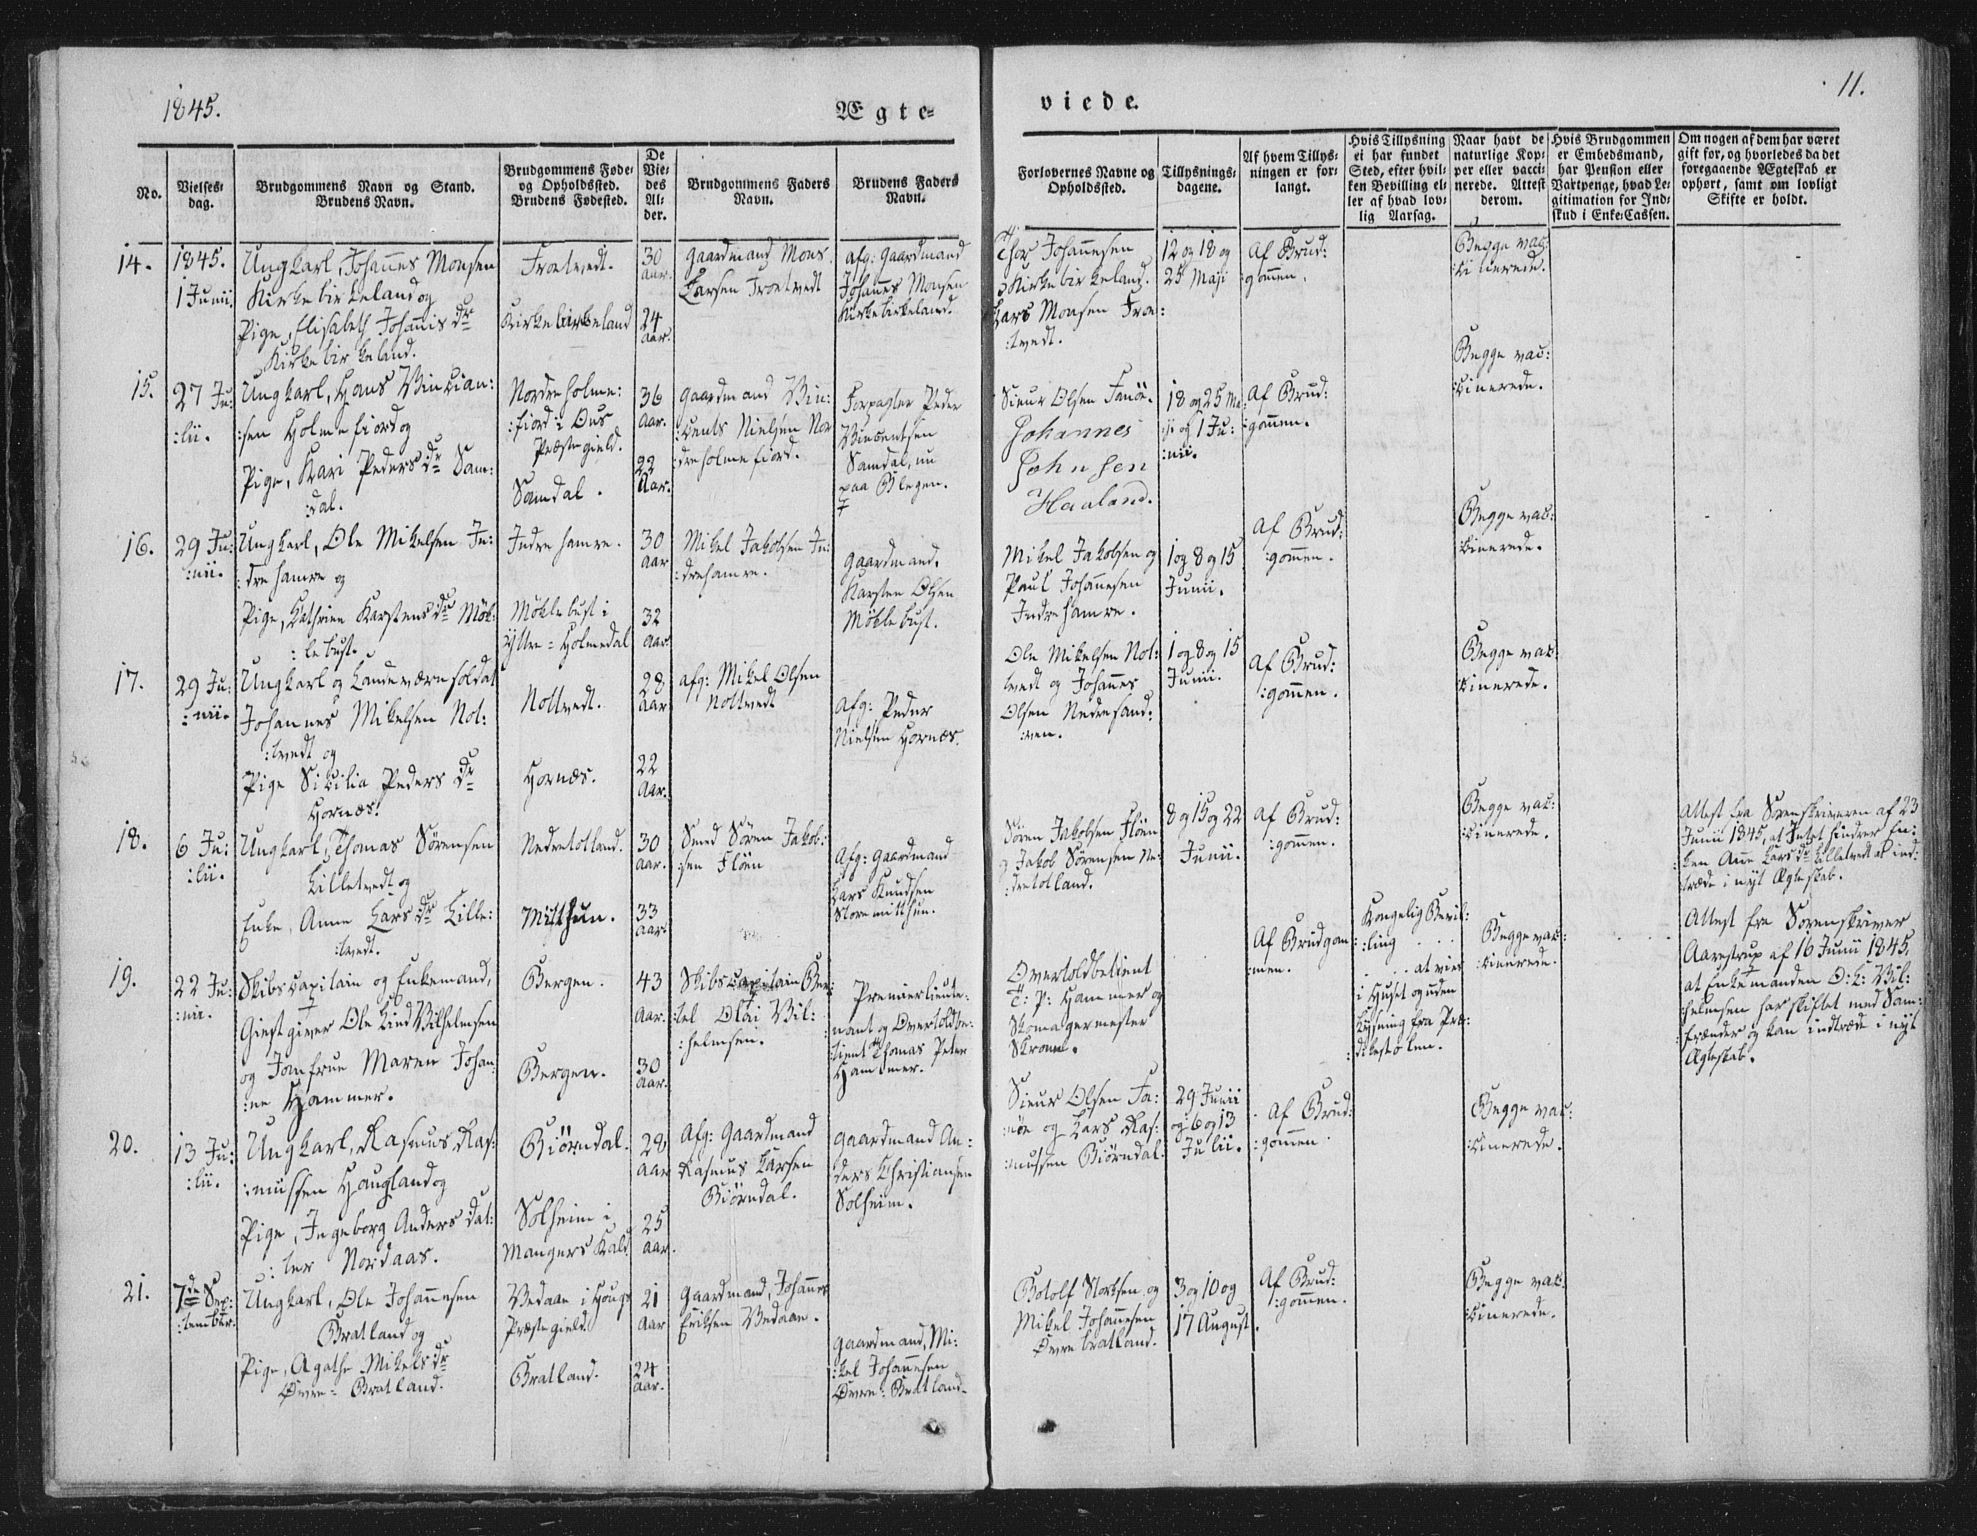 1845.
Ægte-
viede.
11.
No.
Vielses-
dag.
Brudgommens Navn og Stand.
Brudens Navn.
Brudgommens Føde-
og Opholdssted.
Brudens Fødested.
De
Vie-
des
Al-
der.
Brudgommens Faders
Navn.
Brudens Faders
Navn.
Forlovernes Navne og
Opholdssted.
Tillysnings-
dagene.
Af hvem Tillys-
ningen er for-
langt.
Hvis Tillysning
ei har fundet
Sted, efter hvil-
ken Bevilling el-
ler af hvad lov-
lig Aarsag.
Naar havt de
naturlige Kop-
per eller vacci-
nerede. Attest
derom.
Hvis Brudgommen
er Embedsmand,
har Pension eller
Vartpenge, hvad Le-
gitimation for Ind-
skud i Enke-Cassen.
Om nogen af dem har været
gift før, og hvorledes da det
foregaaende Ægteskab er
ophørt, samt om lovligt
Skifte er holdt.
14.
1845.
1 Junii.
Ungkarl, Johannes Monsen
Kirkebirkeland og
Pige, Elisabeth Johannis dr
Kirkebirkeland.
Frotvedt.
Kirkebirkeland
30
Aar.
24
Aar.
Gaardmand Mons
Larsen Frotvedt
Afg: Gaardmand
Johannes Monsen
Kirkebirkeland.
Thor Johannesen
Kirkebirkeland.
Lars Monsen Fro:
:tvedt.
12 og 18 og
25 Maji
Af Brud:
:gommen.
Begge vac:
:cinerede.
15.
27 Ju:
:lii.
Ungkarl, Hans Vincian:
:sen Holmefiord og
Pige, Kari Peders dr Sam:
:dal.
Nordre Holme:
:fiord i Ous
Præstegield.
Samdal.
36
Aar.
22
Aar.
Gaardmand Vin:
:cents Nielsen Nor
dreholmefiord.
Forpagter Peder
Vincentsen
Samdal, nu
paa Blegen.
Sieur Olsen Fanøe.
Johannes
Johnsen
Haaland.
18 og 25 Ma:
:ji og 1 Ju:
:nii.
Af Brud:
:gommen.
Begge vac:
:cinerede.
16.
29 Ju:
:nii.
Ungkarl, Ole Mikelsen In:
:drehamre og
Pige, Kathrine Karstens dr Mök:
:lebust.
Indrehamre.
Möklebust i
Yttre-Holmedal
30
Aar
32
Aar.
Mikel Jakobsen In:
:drehamre.
Gaardmand.
Karsten Olsen
Möklebust.
Mikel Jakobsen og
Paul Johannesen
Indrehamre.
1 og 8 og 15
Junii.
Af Brud:
:gommen.
Begge vac:
:cinerede.
17.
29 Ju:
:nii.
Ungkarl og Landeværnsoldat
Johannes Mikelsen Not:
:tvedt og
Pige Sicilia Peders dr
Hornæs.
Nottvedt.
Hornæs.
28
Aar
22
Aar.
Afg: Mikel Olsen
Nottvedt
Afg: Peder
Nielsen Hornæs.
Ole Mikelsen Not:
tvedt og Johannes
Olsen Nedresand:
:ven.
1 og 8 og 15
Junii.
Af Brud:
:gommen.
Begge vac:
:cinerede.
18.
6 Ju:
:lii.
Ungkarl, Thomas Sörensen
Lilletvedt og
Enke, Anne Lars dr Lille:
:tvedt.
Nedretotland.
Mitthun.
30
Aar.
33
Aar.
Smed Sören Jakob:
:sen Flöen
Afg: Gaardmand
Lars Knudsen
Storemitthun.
Sören Jakobsen Flöen
og Jakob Sörensen Ne:
:dretotland.
8 og 15 og 22
Junii.
Af Brud:
:gommen.
Begge vac:
:cinerede.
Attest fra Sorenskriveren af 23
Junii 1845, at Intet hindrer En:
:ken Ane Lars dr Lilletvedt at ind:
:træde i nyt Ægteskab.
19.
22 Ju:
:nii.
Skibscapitain og Enkemand,
Giestgiver Ole Lind Vilhelmsen
og Jomfrue Maren Johan:
:ne Hammer.
Bergen.
Bergen.
43
Aar.
30
Aar.
Skibscapitain Ber:
:tel Olai Vil:
:helmsen.
Premierlieute:
:nant og Overtoldbe:
:tient Thomas Peter
Hammer.
Overtoldbetient
T: P: Hammer og
Skomagermester
Skram.
Af Brudgom:
:men.
Kongelig Bevil:
:ling
at vies
i Huset og uden
Lysning fra Præ:
:dikestolen.
Begge vac:
:cinerede.
Attest fra Sorenskriver
Aarestrup af 16 Junii 1845,
at Enkemanden O: L: Vil:
:helmsen har skiftet med Sam:
:frænder og kan indtræde i nyt
Ægteskab.
20.
13 Ju:
:lii.
Ungkarl, Rasmus Ras:
:mussen Haugland og
Pige, Ingeborg Anders dat:
:ter Nordaas.
Biörndal.
Solheim i
Mangers Kald.
28
Aar
25
Aar.
Afg: Gaardmand
Rasmus Larsen
Biörndal.
Gaardmand An:
ders Christiansen
Solheim.
Sieur Olsen Fa:
:nøe og Lars Ras:
:mussen Biörndal.
29 Junii
og 6 og 13
Julii.
Af Brud:
:gommen.
Begge vac:
:cinerede.
21.
7de Sep:
:tember.
Ungkarl, Ole Johannesen
Bratland og
Pige, Agathe Mikels dr
Övre-Bratland.
Vedaae i Hougs
Præstegield.
Bratland.
21
Aar
24
Aar.
Gaardmand, Johannes
Eriksen Vedaae.
Gaardmand, Mi:
:kel Johannesen
Övre-Bratland.
Botolf Storksen og
Mikel Johannesen
Övre Bratland.
3 og 10 og
17 August.
Af Brud:
:gommen.
Begge vac:
:cinerede.